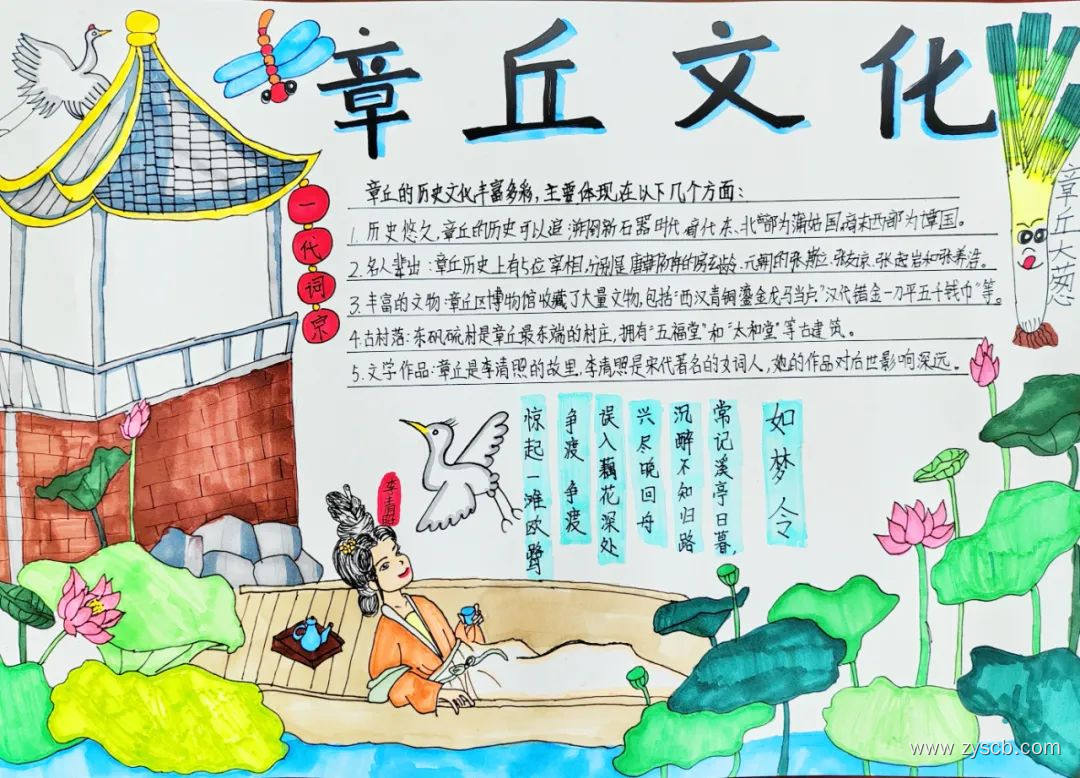 章丘文化
章丘大葱
一代词京
章丘的历史文化丰富多彩，主要体现在以下几个方面：
1. 历史悠久，章丘的历史可以追溯到新石器时代 商代东、北部为蒲姑国，南西部为谭国。
2. 名人辈出：章丘历史上有5位宰相，分别是唐朝的房玄龄、元朝的张斯立、张友谅、张起岩和张养浩。
3. 丰富的文物：章丘区博物馆收藏了大量文物，包括“西汉青铜鎏金龙马当卢”“汉代错金一刀平五千钱币”等。
4. 古村落：东矾硫村是章丘最东端的村庄，拥有“五福堂”和“太和堂”等古建筑。
5. 文学作品：章丘是李清照的故里，李清照是宋代著名的女词人，她的作品对后世影响深远。
如梦令
常记溪亭日暮，
沉醉不知归路
兴尽晚回舟
误入藕花深处
争渡 争渡
惊起一滩欧鹭
李清照
www.zyscb.com